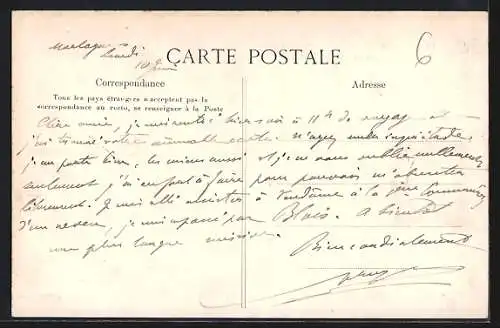 lundi
10 Juin
6
CARTE POSTALE
Correspondance
Adresse
Tous les pays étrangers n'acceptent pas la
correspondance au recto, se renseigner à la Poste
Chère amie, je suis rentré hier soir à 11h de voyage et
j'ai trouvé votre aimable carte. N'ayez nulle inquiétude
je me porte bien, les miens aussi et je ne vous oublie nullement
seulement j'ai à faire pour pouvoir m'absenter
librement. Je suis allé à Vendôme à la 1ère Communion
d'un neveu, je suis passé par Blois. A bientôt
une plus longue missive.
Bien cordialement